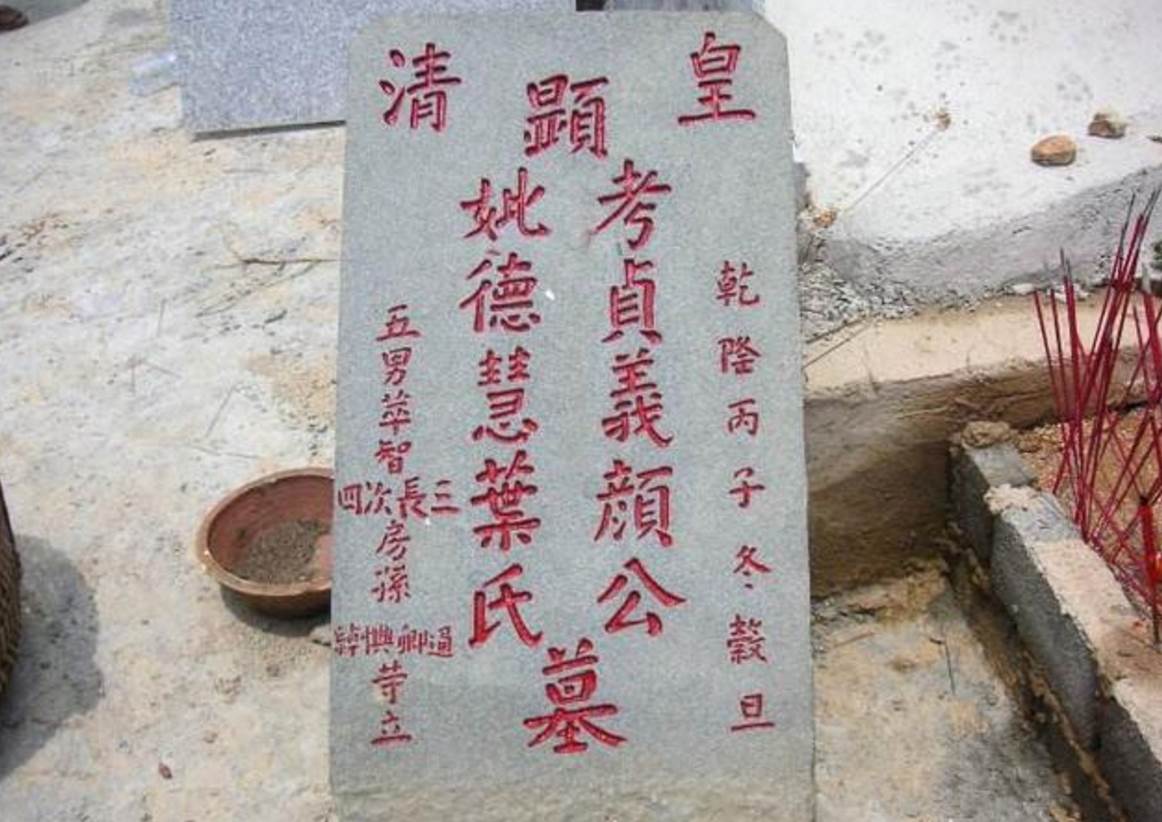 皇清
乾隆丙子冬穀旦
顯
考貞義顏公
妣德慧葉氏
墓
五男苹智
三長次四
房孫
卿
等立